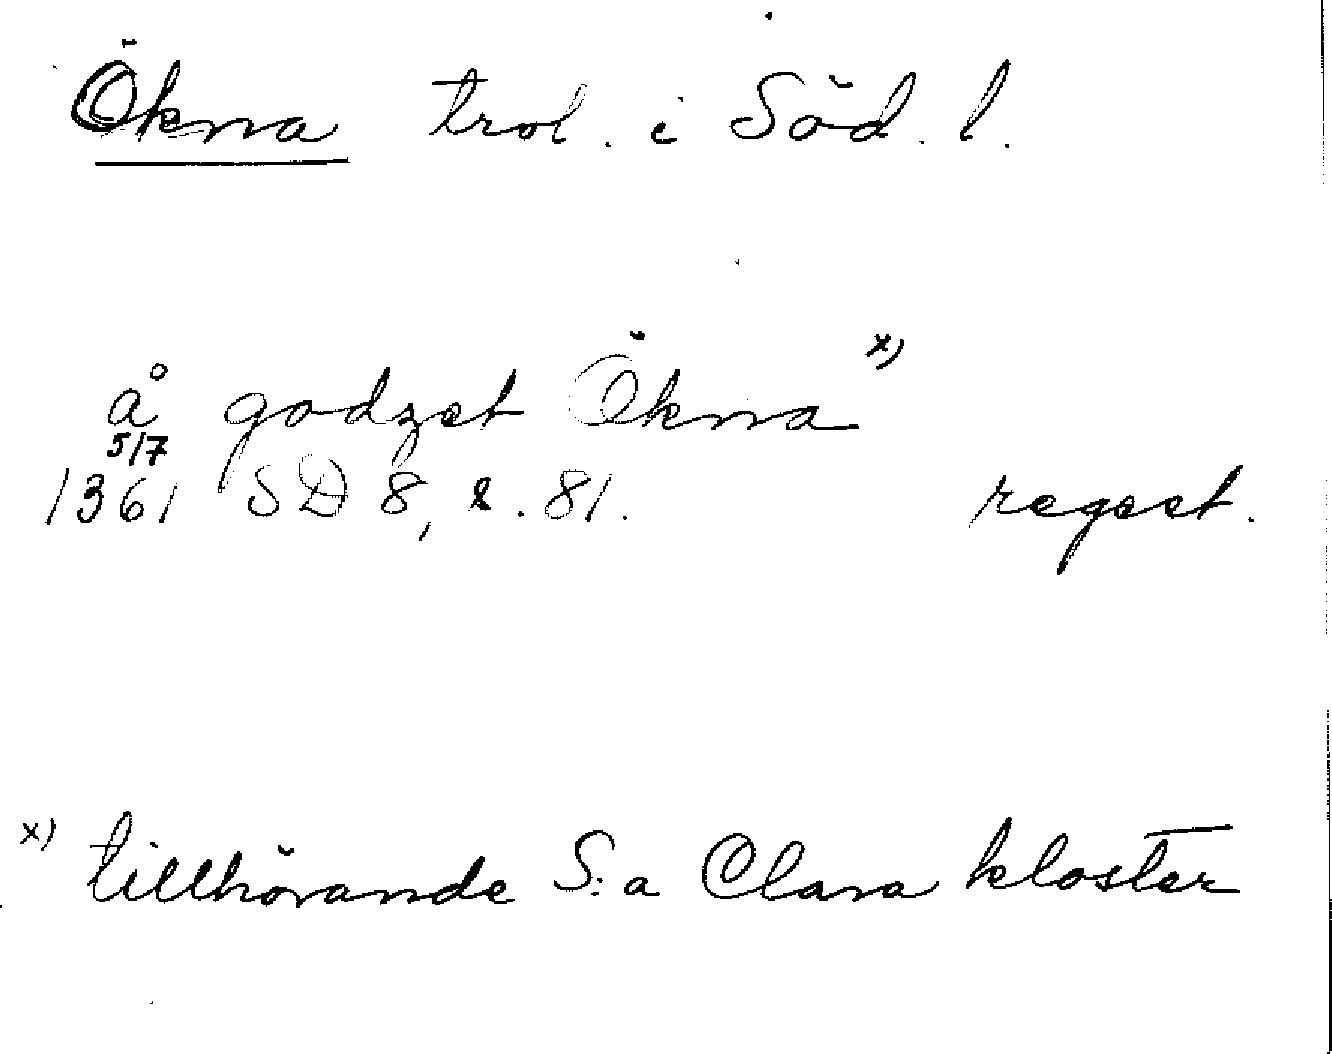 Ökna trol. i Söd. l.
å godzet Ökna x)
5/7
1361 SD 8, s. 81. regest.
x) tillhörande S:a Clara kloster